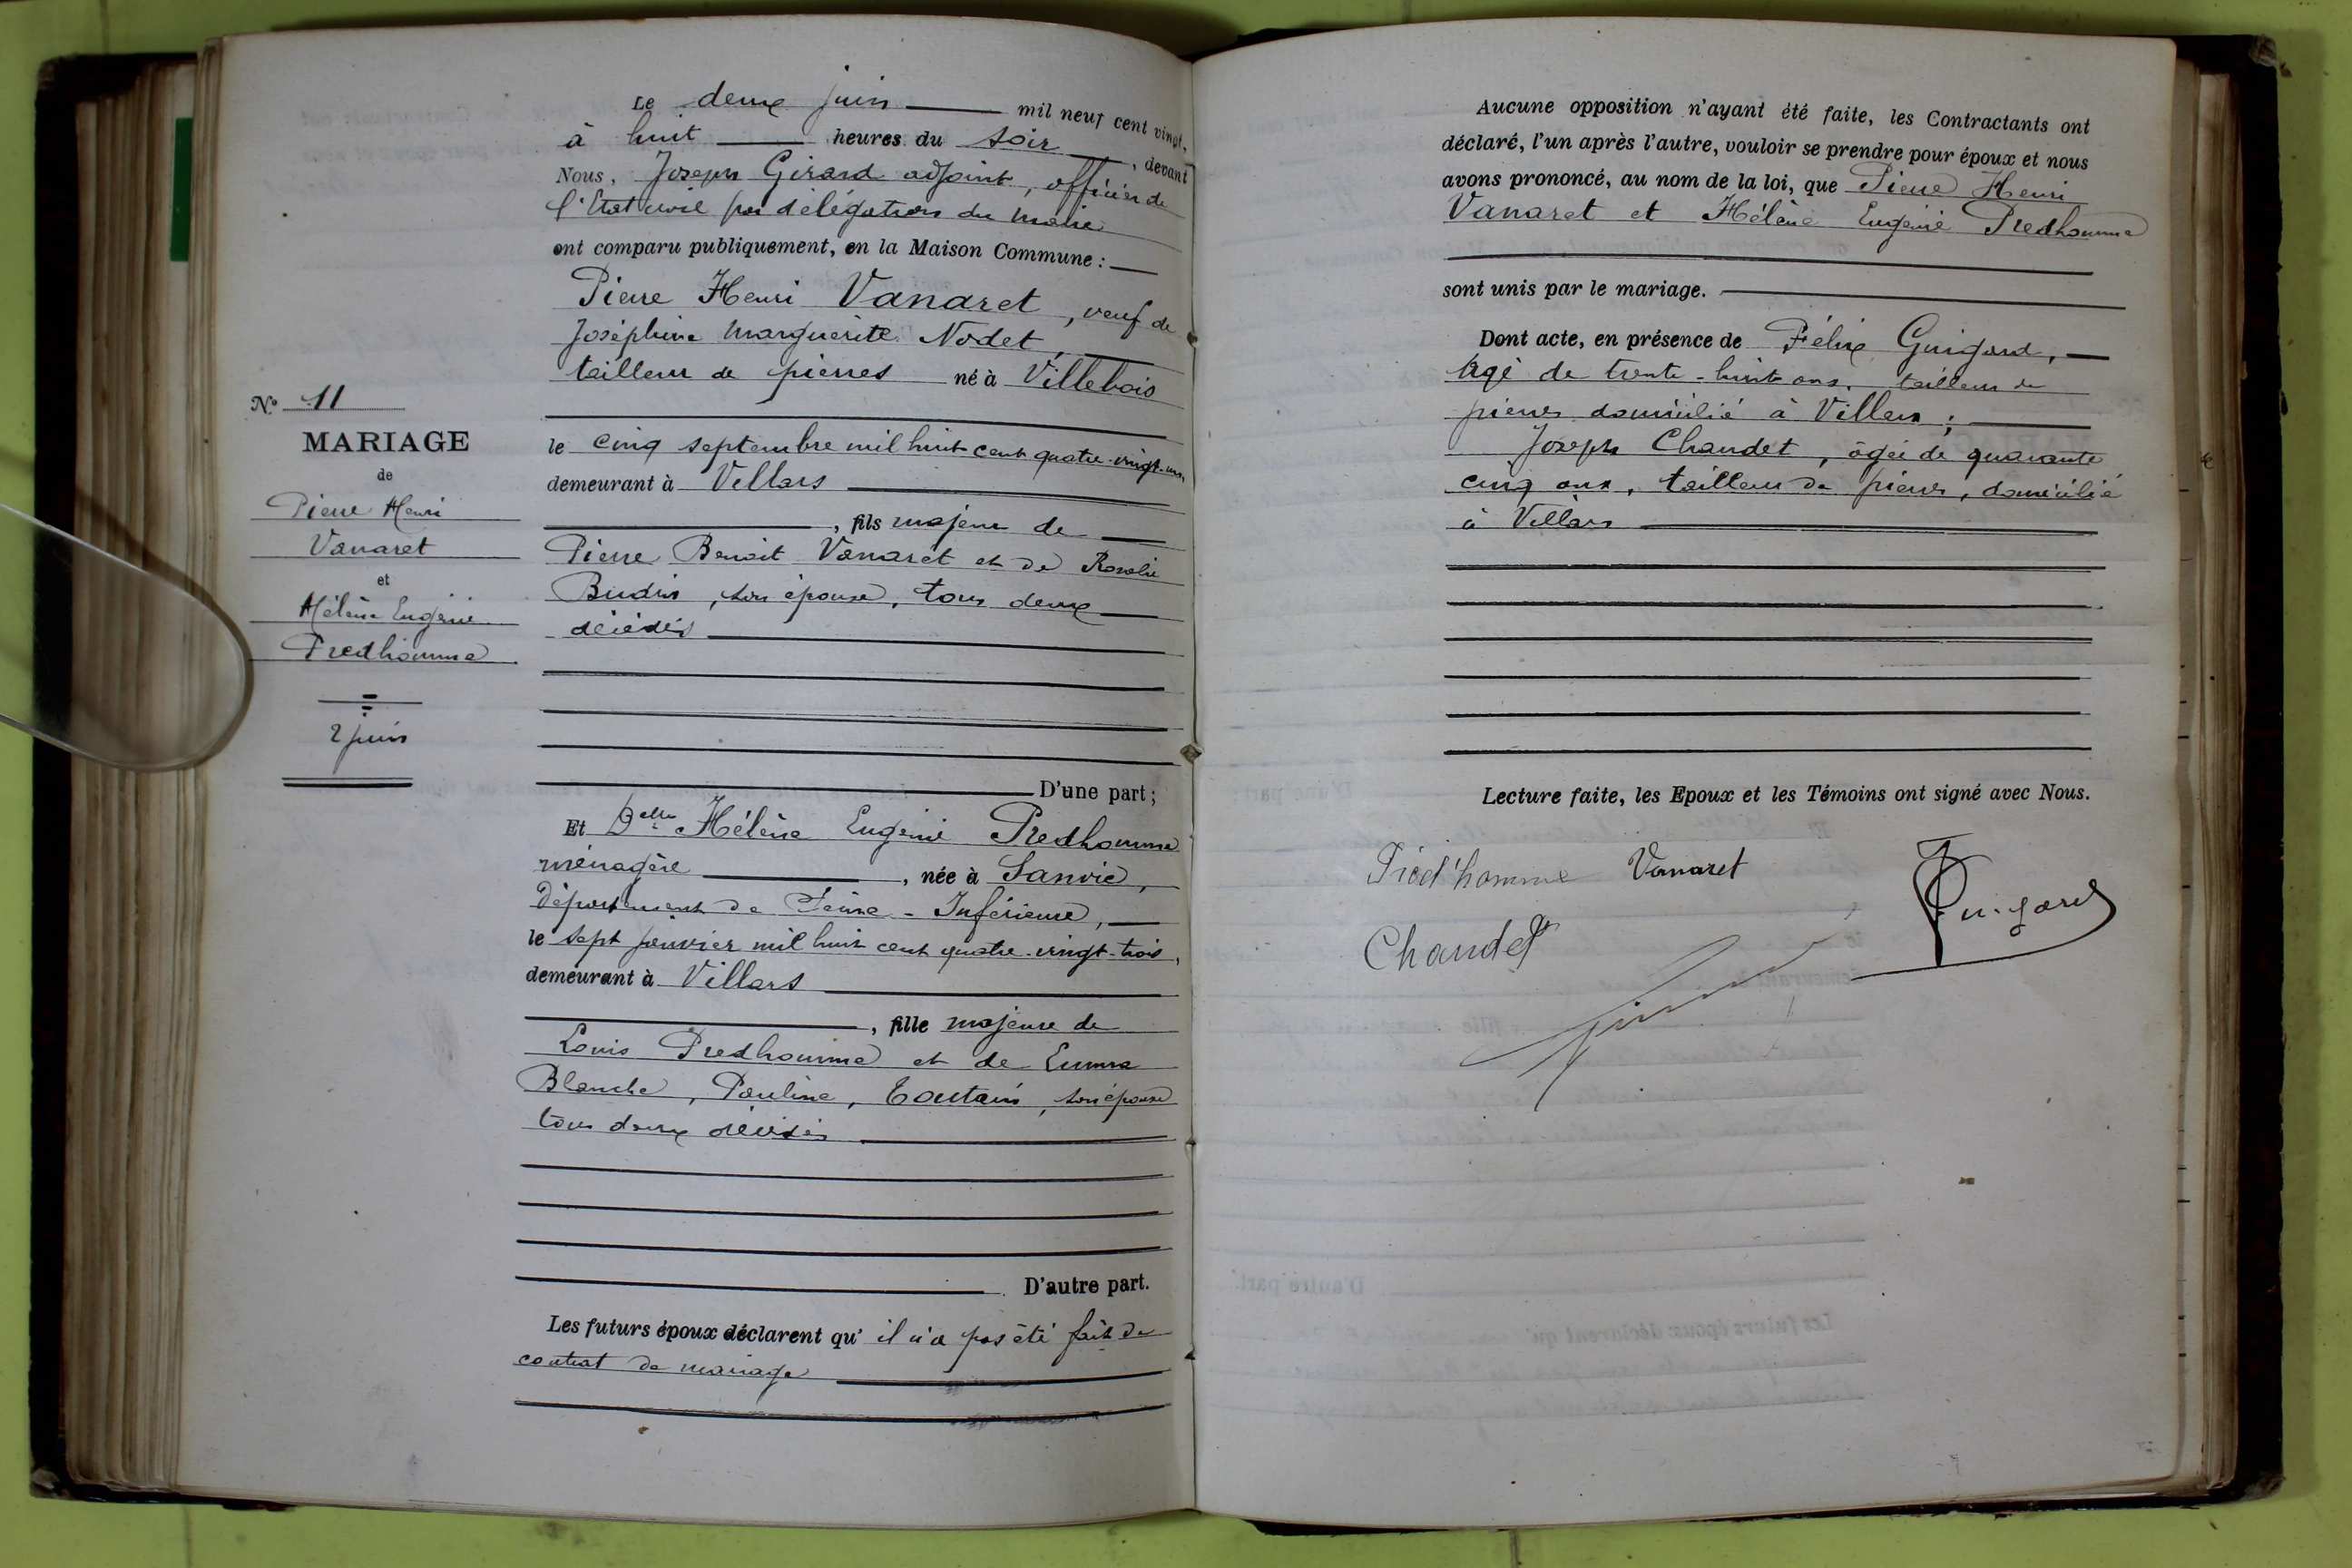 Le deux juin mil neuf cent vingt,
à huit heures du soir, devant
Nous, Joseph Girard adjoint, officier de
l'Etat civil par délégation du maire
ont comparu publiquement, en la Maison Commune :
Pierre Henri Vanaret, veuf de
Joséphine Marguerite Nodet,
tailleur de pierres né à Villebois
le cinq septembre mil huit cent quatre-vingt-un,
demeurant à Villars
, fils majeur de
Pierre Benoit Vanaret et de Rosalie
Budin, son épouse, tous deux
décédés
D'une part ;
Et Delle Hélène Eugénie Predhomme
ménagère, née à Sanvic,
département de Seine-Inférieure,
le sept janvier mil huit cent quatre-vingt-trois,
demeurant à Villars
, fille majeure de
Louis Predhomme et de Emma
Blanche, Pauline, Coutain, son épouse
tous deux décédés
D'autre part.
Les futurs époux déclarent qu' il n'a pas été fait de
contrat de mariage
N° 11
MARIAGE
de
Pierre Henri
Vanaret
et
Hélène Eugénie
Predhomme
2 juin
Aucune opposition n'ayant été faite, les Contractants ont
déclaré, l'un après l'autre, vouloir se prendre pour époux et nous
avons prononcé, au nom de la loi, que Pierre Henri
Vanaret et Hélène Eugénie Predhomme
sont unis par le mariage.
Dont acte, en présence de Félix Guigard,
âgé de trente-huit ans, tailleur de
pierres domicilié à Villars ;
Joseph Chaudet, âgé de quarante
cinq ans, tailleur de pierres, domicilié
à Villars
Lecture faite, les Epoux et les Témoins ont signé avec Nous.
Pred'homme Vanaret
Guigard
Chaudet